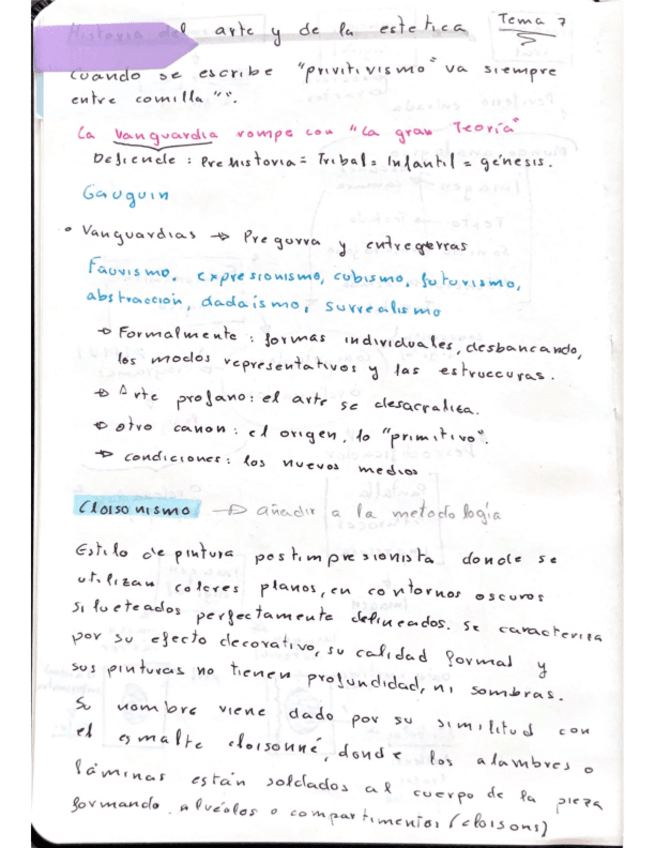 Historia del arte y de la estetica Tema 7
Cuando se escribe "privitivismo" va siempre
entre comilla "".
La vanguardia rompe con "la gran Teoría"
Defiende : Prehistoria = Tribal = Infantil = génesis.
Gauguin
• Vanguardias → Pregurra y entregerras
Fauvismo, expresionismo, cubismo, futurismo,
abstracción, dadaísmo, surrealismo
→ Formalmente : formas individuales, desbancando,
los modos representativos y las estruccuras.
→ Arte profano: el arte se desacraliza.
→ otro canon: el origen, lo "primitivo".
→ condiciones: los nuevos medios
Cloisonismo → añadir a la metodología
Estilo de pintura postimpresionista donde se
utilizan colores planos, en contornos oscuros
silueteados perfectamente delineados. Se caracteriza
por su efecto decorativo, su calidad formal y
sus pinturas no tienen profundidad, ni sombras.
Su nombre viene dado por su similitud con
el esmalte cloisonné, donde los alambres o
láminas están soldados al cuerpo de la pieza
formando alvéolos o compartimentos (cloisons)